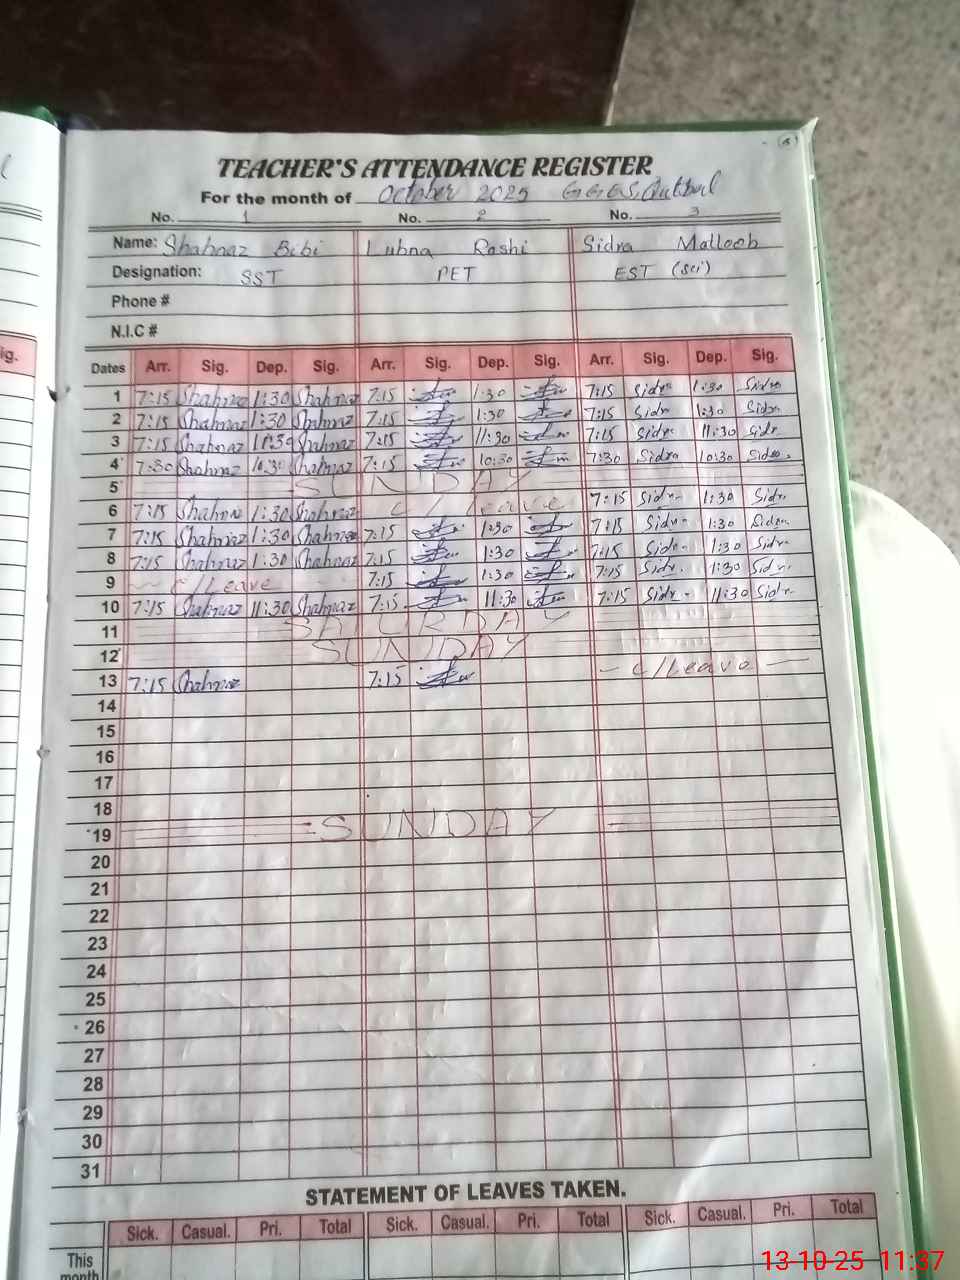 TEACHER'S ATTENDANCE REGISTER
For the month of October 2025 G.G.E.S,
No. 1 No. 2 No. 3
Name: Shahnaz Bibi Lubna Roshi Sidra Matloob
Designation: SST PET EST (sci)
Phone #
N.I.C #
ig.
Dates Arr. Sig. Dep. Sig. Arr. Sig. Dep. Sig. Arr. Sig. Dep. Sig.
1 7:15 Shahnaz 1:30 Shahnaz 7:15 1:30 7:15 Sidra 1:30 Sidra
2 7:15 Shahnaz 1:30 Shahnaz 7:15 1:30 7:15 Sidra 1:30 Sidra
3 7:15 Shahnaz 11:30 Shahnaz 7:15 11:30 7:15 Sidra 11:30 Sidra
4 7:30 Shahnaz 10:30 Shahnaz 7:15 10:30 7:30 Sidra 10:30 Sidra
5 SUNDAY
6 7:15 Shahnaz 1:30 Shahnaz c/Leave 7:15 Sidra 1:30 Sidra
7 7:15 Shahnaz 1:30 Shahnaz 7:15 1:30 7:15 Sidra 1:30 Sidra
8 7:15 Shahnaz 1:30 Shahnaz 7:15 1:30 7:15 Sidra 1:30 Sidra
9 c/Leave 7:15 1:30 7:15 Sidra 1:30 Sidra
10 7:15 Shahnaz 11:30 Shahnaz 7:15 11:30 7:15 Sidra 11:30 Sidra
11 SATURDAY
12 SUNDAY
13 7:15 Shahnaz 7:15 - c/Leave -
14
15
16
17
18
19 SUNDAY
20
21
22
23
24
25
26
27
28
29
30
31
STATEMENT OF LEAVES TAKEN.
Sick. Casual. Pri. Total Sick. Casual. Pri. Total Sick. Casual. Pri. Total
This
month
13-10-25 11:37